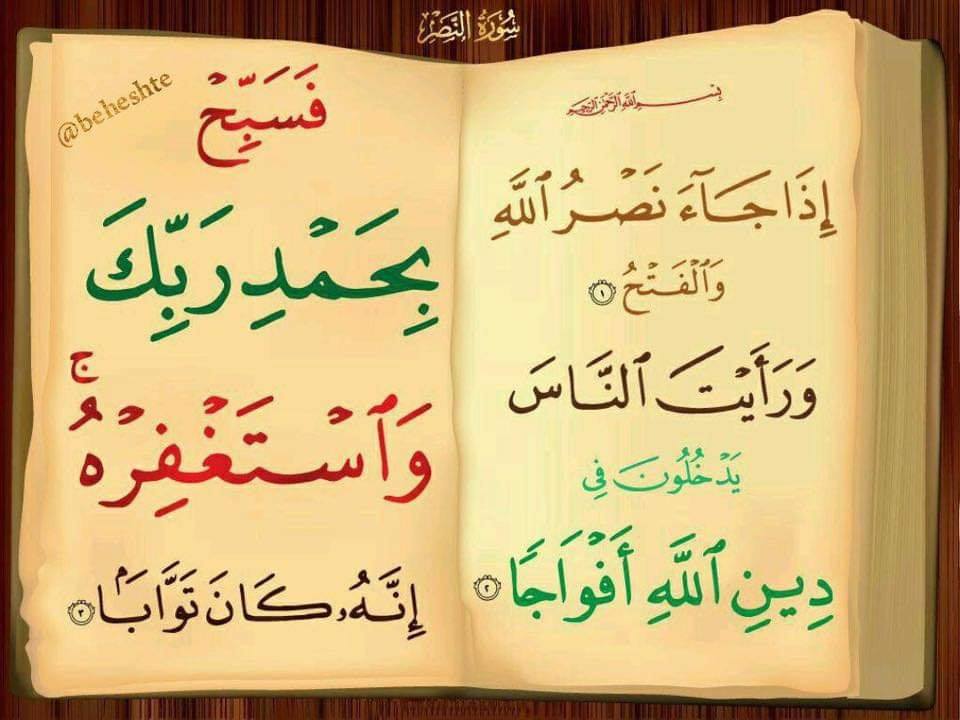 سُورَةُ النَّصْرِ
بِسْمِ اللَّهِ الرَّحْمَٰنِ الرَّحِيمِ
إِذَا جَآءَ نَصْرُ ٱللَّهِ
وَٱلْفَتْحُ ١
وَرَأَيْتَ ٱلنَّاسَ
يَدْخُلُونَ فِي
دِينِ ٱللَّهِ أَفْوَاجًا ٢
@beheshte
فَسَبِّحْ
بِحَمْدِ رَبِّكَ
وَٱسْتَغْفِرْهُ ۚ
إِنَّهُۥ كَانَ تَوَّابَۢا ٣